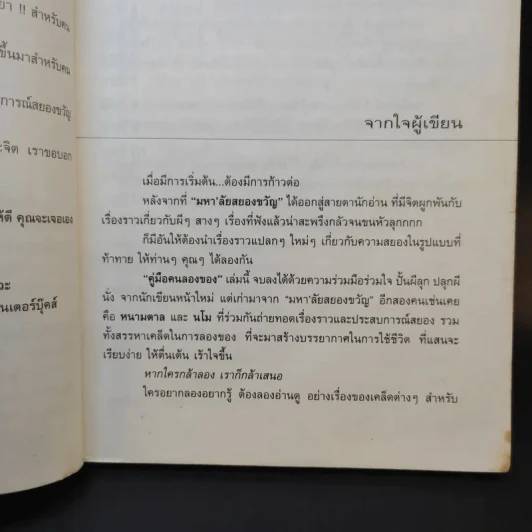 ยา !! สำหรับคน
ขึ้นมาสำหรับคน
การณ์สยองขวัญ
ะจิต เราขอบอก
ห้ดี คุณจะเจอเอง
วะ
นเตอร์บุ๊คส์
จากใจผู้เขียน
เมื่อมีการเริ่มต้น...ต้องมีการก้าวต่อ
หลังจากที่ “มหา’ลัยสยองขวัญ” ได้ออกสู่สายตานักอ่าน ที่มีจิตผูกพันกับ
เรื่องราวเกี่ยวกับผีๆ สางๆ เรื่องที่ฟังแล้วน่าสะพรึงกลัวจนขนหัวลุกกกก
ก็มีอันให้ต้องนำเรื่องราวแปลกๆ ใหม่ๆ เกี่ยวกับความสยองในรูปแบบที่
ท้าทาย ให้ท่านๆ คุณๆ ได้ลองกัน
“คู่มือคนลองของ” เล่มนี้ จบลงได้ด้วยความร่วมมือร่วมใจ ปั้นผีลุก ปลุกผี
นั่ง จากนักเขียนหน้าใหม่ แต่เก๋ามาจาก “มหา’ลัยสยองขวัญ” อีกสองคนเช่นเคย
คือ หนามตาล และ นโม ที่ร่วมกันถ่ายทอดเรื่องราวและประสบการณ์สยอง รวม
ทั้งสรรหาเคล็ดในการลองของ ที่จะมาสร้างบรรยากาศในการใช้ชีวิต ที่แสนจะ
เรียบง่าย ให้ตื่นเต้น เร้าใจขึ้น
หากใครกล้าลอง เราก็กล้าเสนอ
ใครอยากลองอยากรู้ ต้องลองอ่านดู อย่างเรื่องของเคล็ดต่างๆ สำหรับ